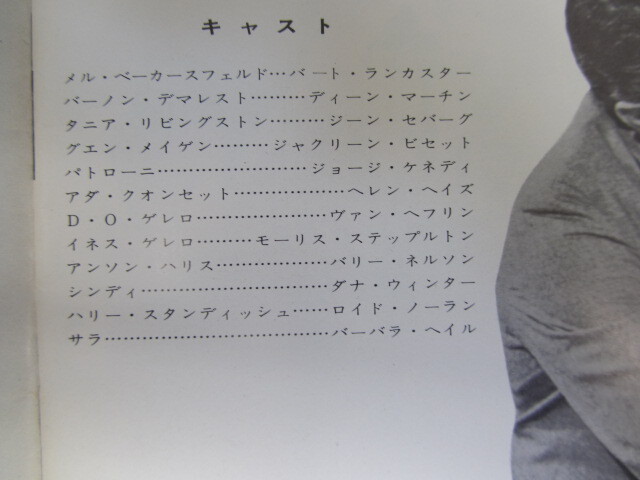 キャスト
メル・ベーカースフェルド…バート・ランカスター
バーノン・デマレスト………ディーン・マーチン
タニア・リビングストン………ジーン・セバーグ
グエン・メイゲン………ジャクリーン・ビセット
パトローニ……………………ジョージ・ケネディ
アダ・クオンセット………………ヘレン・ヘイズ
D・O・ゲレロ…………………ヴァン・ヘフリン
イネス・ゲレロ………モーリス・ステップルトン
アンソン・ハリス………………バリー・ネルソン
シンディ…………………………ダナ・ウィンター
ハリー・スタンディッシュ……ロイド・ノーラン
サラ………………………………バーバラ・ヘイル